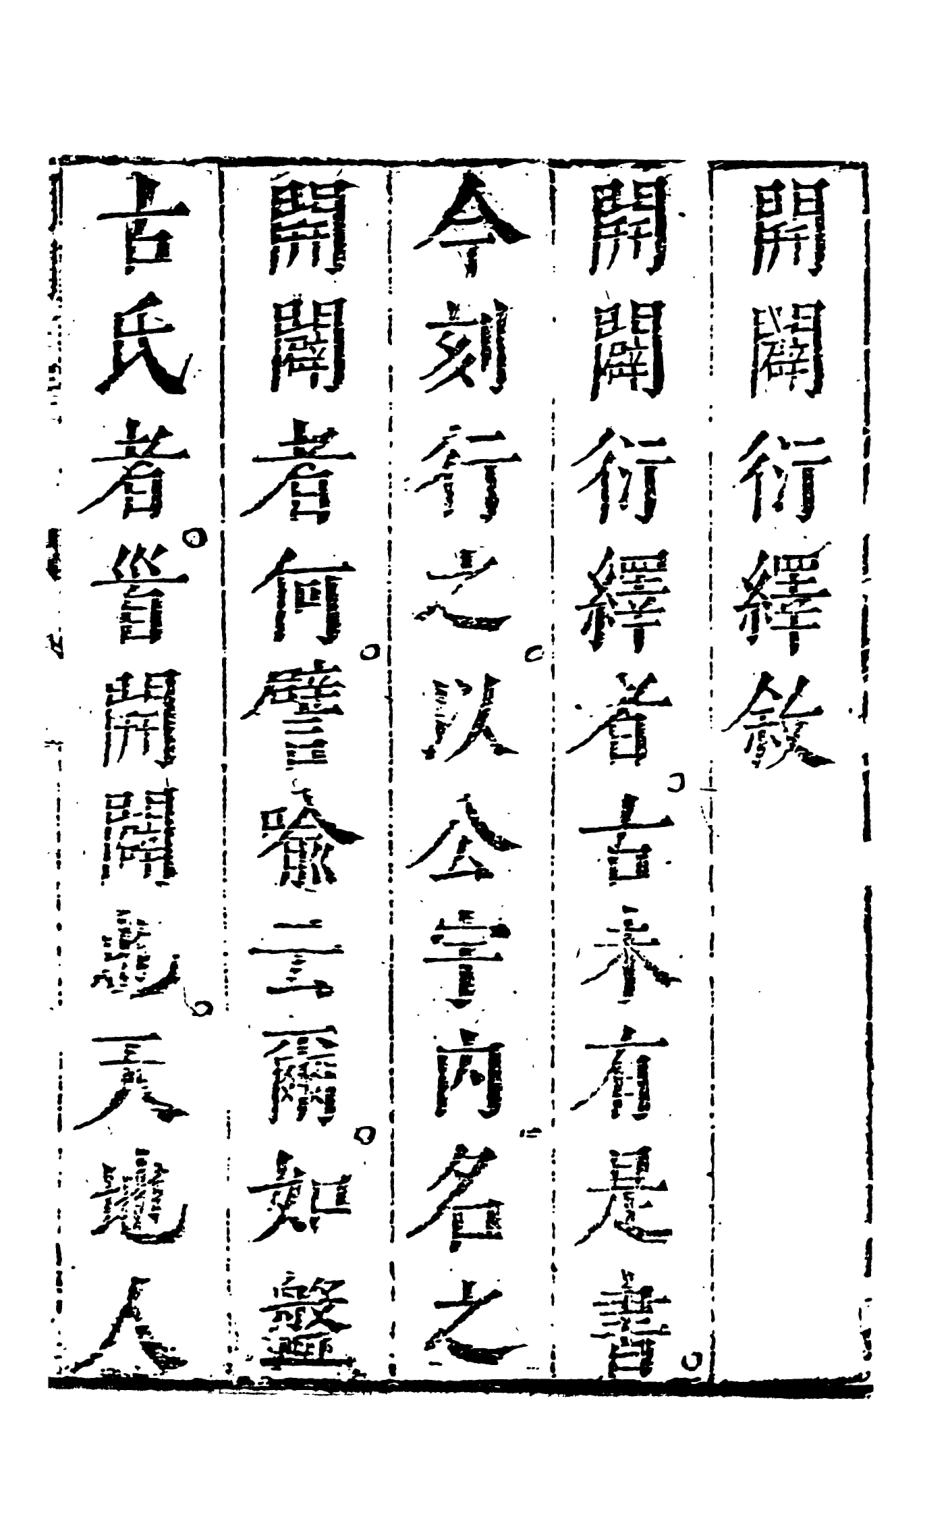 開闢衍繹敘
開闢衍繹者古未有是書
今刻行之以公宇内名之
開闢者何譬喻云爾如盤
古氏者首開闢也天地人